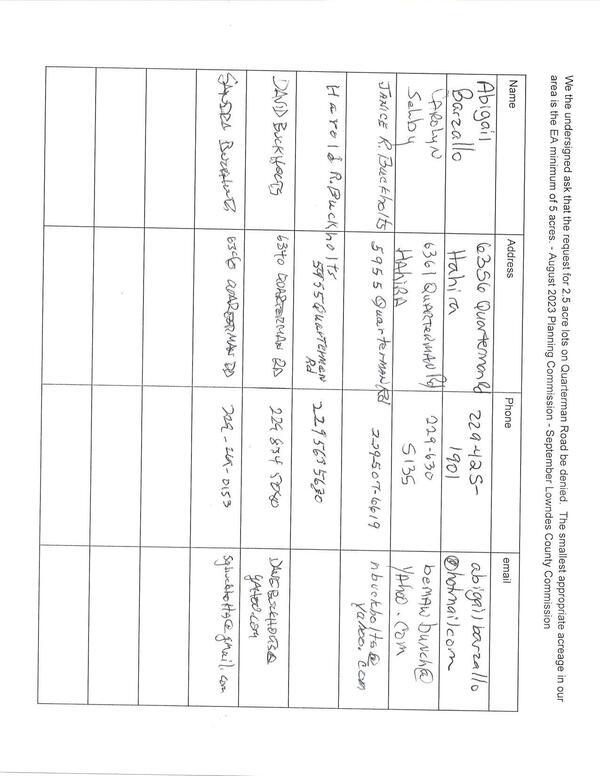 We the undersigned ask that the request for 2.5 acre lots on Quarterman Road be denied. The smallest appropriate acreage in our
area is the EA minimum of 5 acres. - August 2023 Planning Commission - September Lowndes County Commission
Name Address Phone email
Abigail 6356 Quarterman Rd 229-425- abigailbarzallo
Barzallo Hahira 1901 @hotmail.com
CAROLYN 6361 QUARTERMAN Rd 229-630 bemawbunch@
Selby HAHIRA 5135 YAhoo.com
JANICE R. Buckholts 5955 Quarterman Rd 229 507-6619 nbuckholts@
yahoo.com
Harold R. Buckholts 5955 QUARTERMAN 2295635630
Rd
DAVID BUCKHOLTS 6340 QUARTERMAN RD 229 834 5080
YAHOO.COM
SANDRA BUCKHOLTS 6340 QUARTERMAN RD 229-269-0153 sgbuckholts@gmail.com